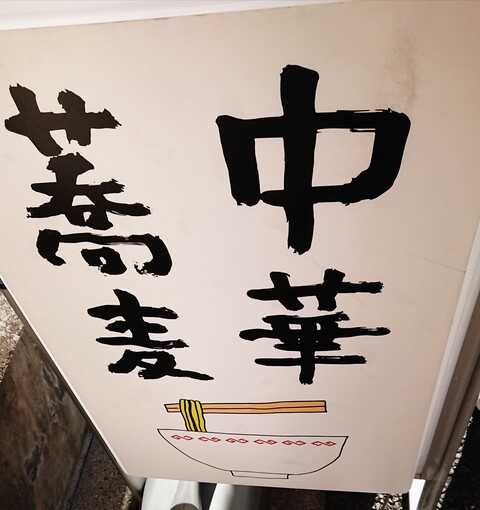 中華
蕎麦